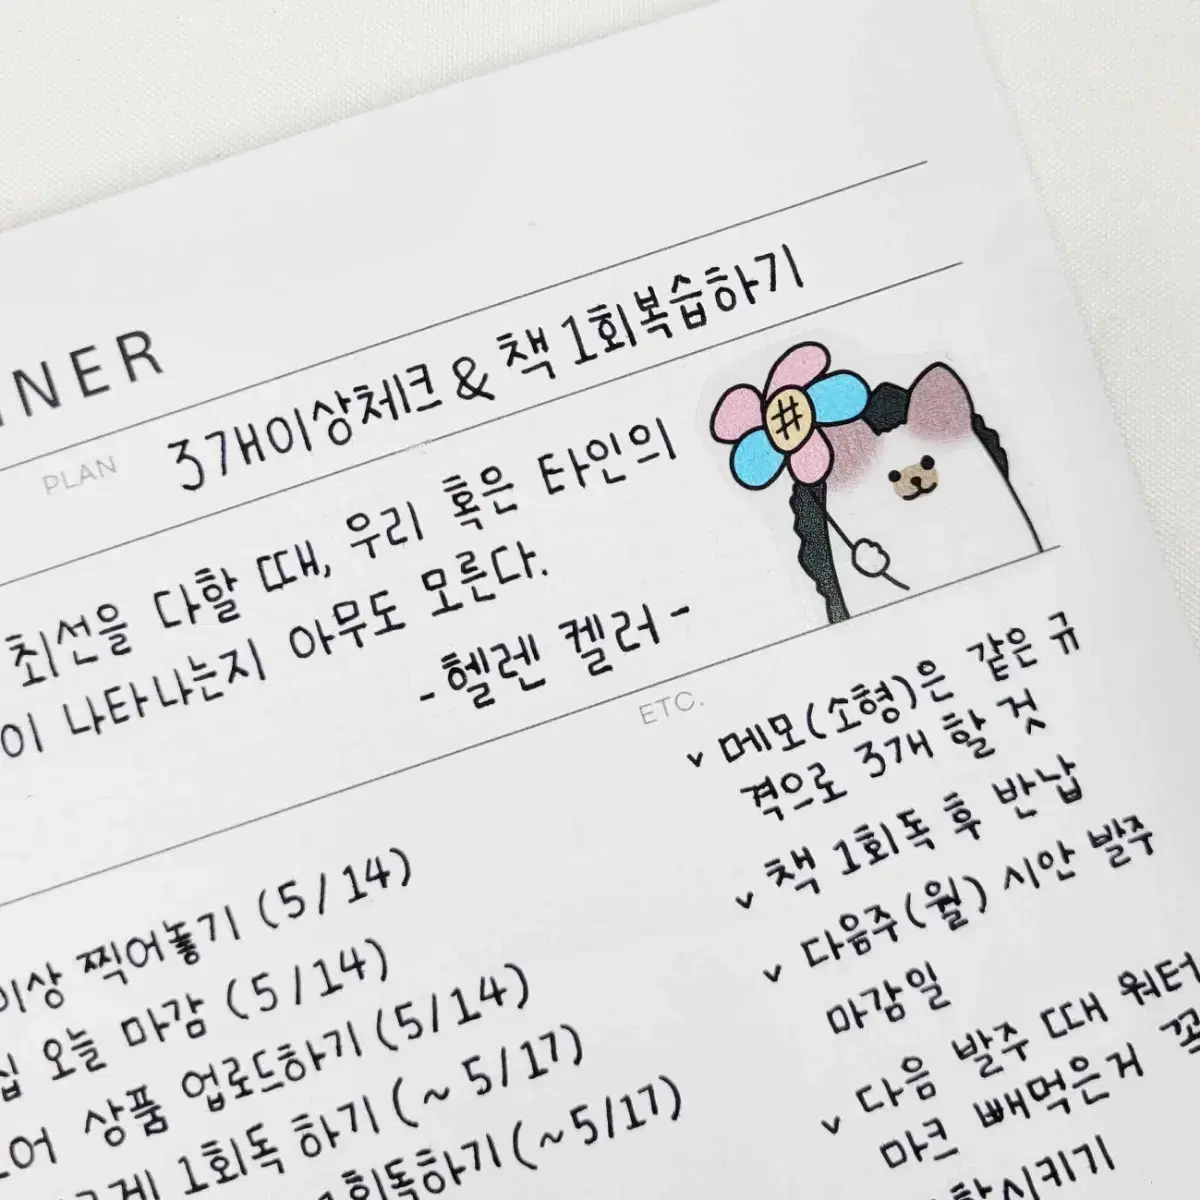 NNER
PLAN 3개이상체크 & 책 1회복습하기
최선을 다할 때, 우리 혹은 타인의
이 나타나는지 아무도 모른다.
-헬렌 켈러-
#
ETC.
v 메모(소형)은 같은 규
격으로 3개 할 것
v 책 1회독 후 반납
v 다음주(월) 시안 발주
마감일
v 다음 발주 때 워터
마크 빼먹은거 꼭
시키기
이상 찍어놓기 (5/14)
오늘 마감 (5/14)
상품 업로드하기 (5/14)
1회독 하기 (~5/17)
회독하기 (~5/17)